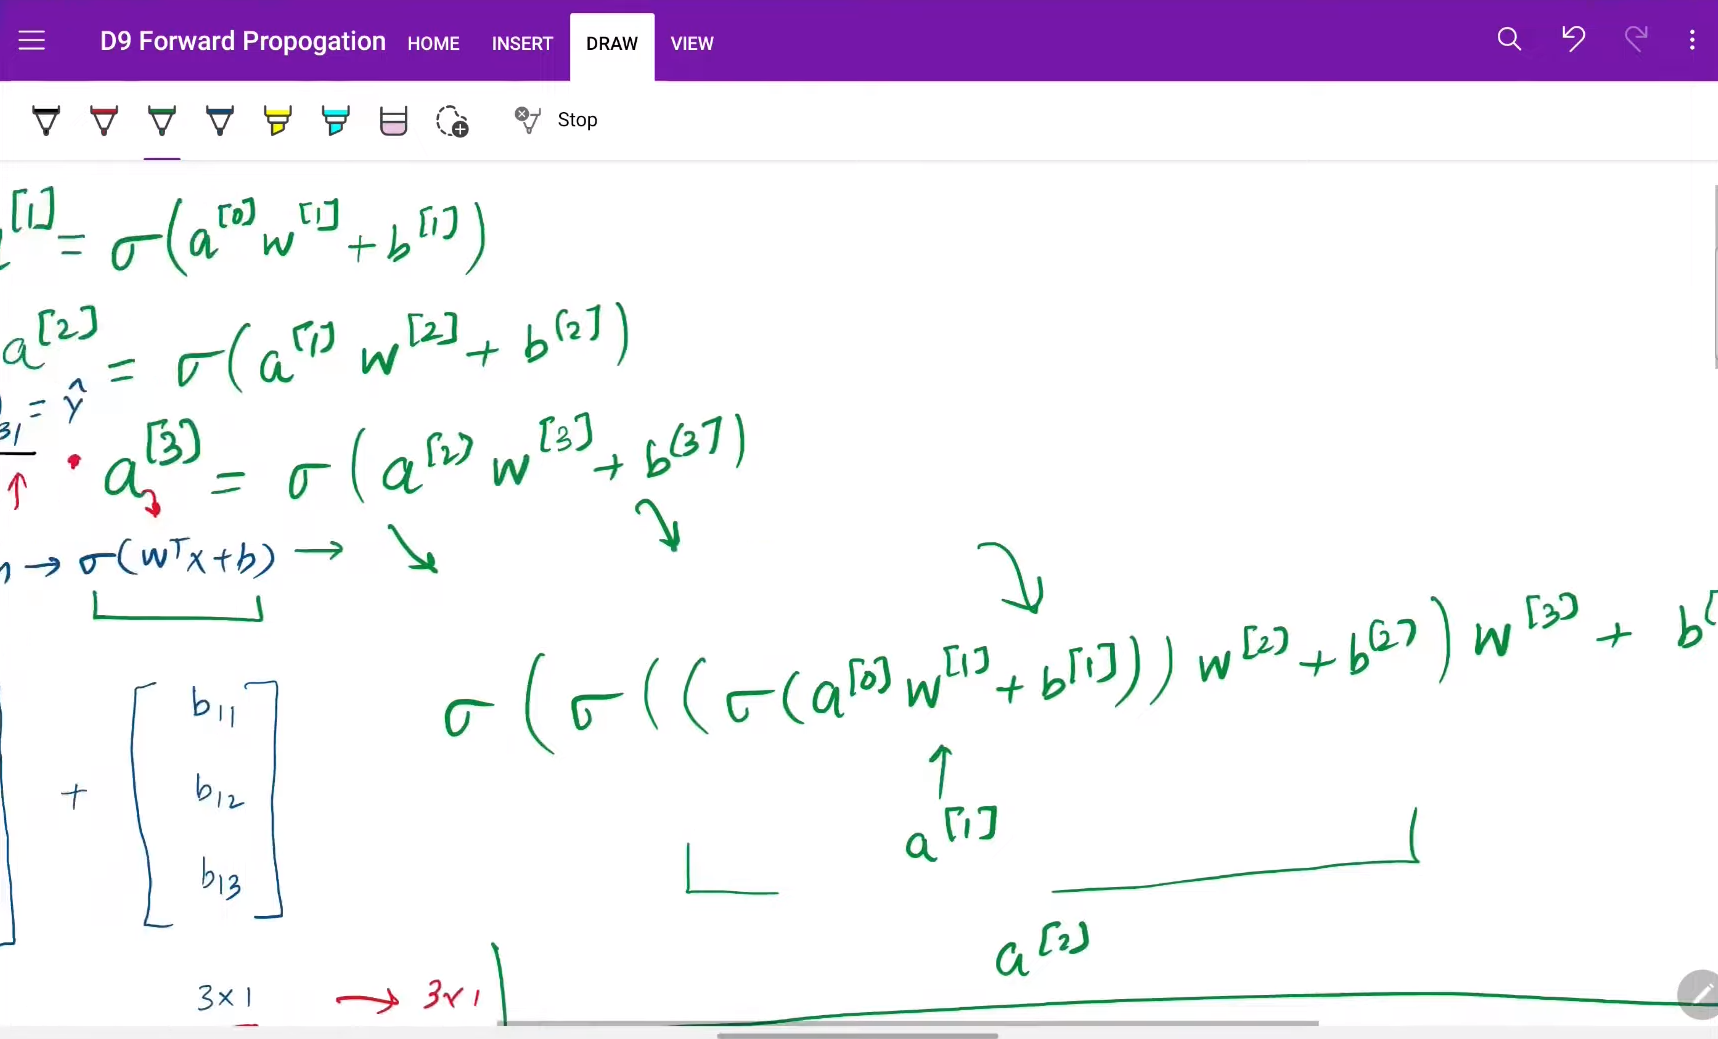 D9 Forward Propogation HOME INSERT DRAW VIEW
Stop
[1] = σ(a^[0] w^[1] + b^[1])
a^[2] = σ(a^[1] w^[2] + b^[2])
= ŷ
31
a^[3] = σ(a^[2] w^[3] + b^[3])
→ σ(w^T x + b) →
σ(σ((σ(a^[0] w^[1] + b^[1])) w^[2] + b^[2]) w^[3] + b^[
b11
+ b12
b13
a^[1]
a^[2]
3×1 → 3×1